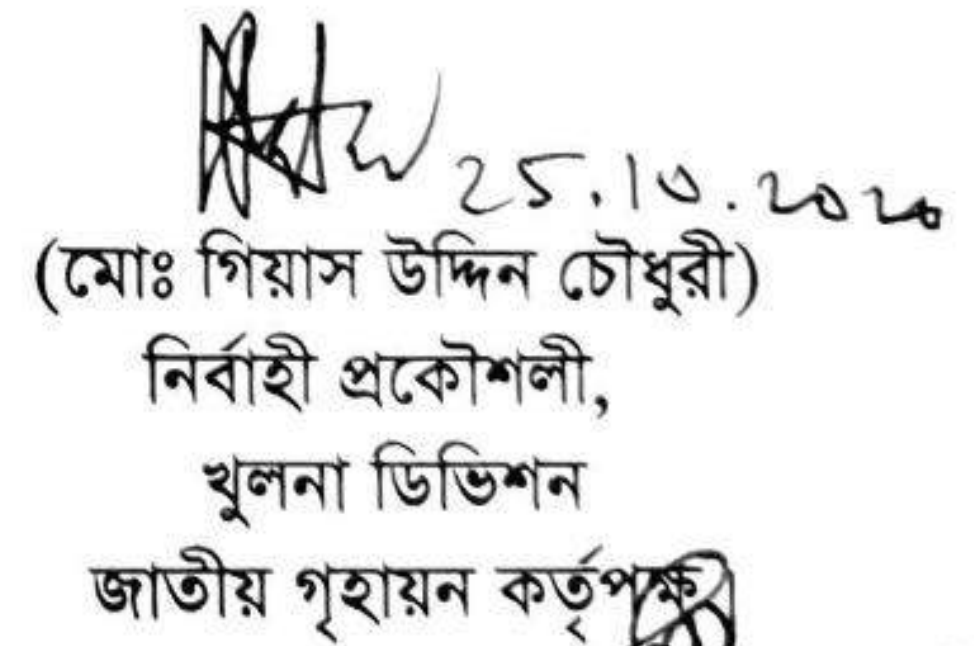 25.10.2020
(মোঃ গিয়াস উদ্দিন চৌধুরী)
নির্বাহী প্রকৌশলী,
খুলনা ডিভিশন
জাতীয় গৃহায়ন কর্তৃপক্ষ